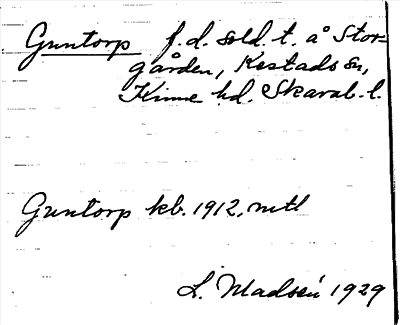 Guntorp f.d. sold. t. å Stor-
gården, Kestads sn,
Kinne hd. Skarab. l.
Guntorp kb. 1912, mtl
L. Madsén 1929